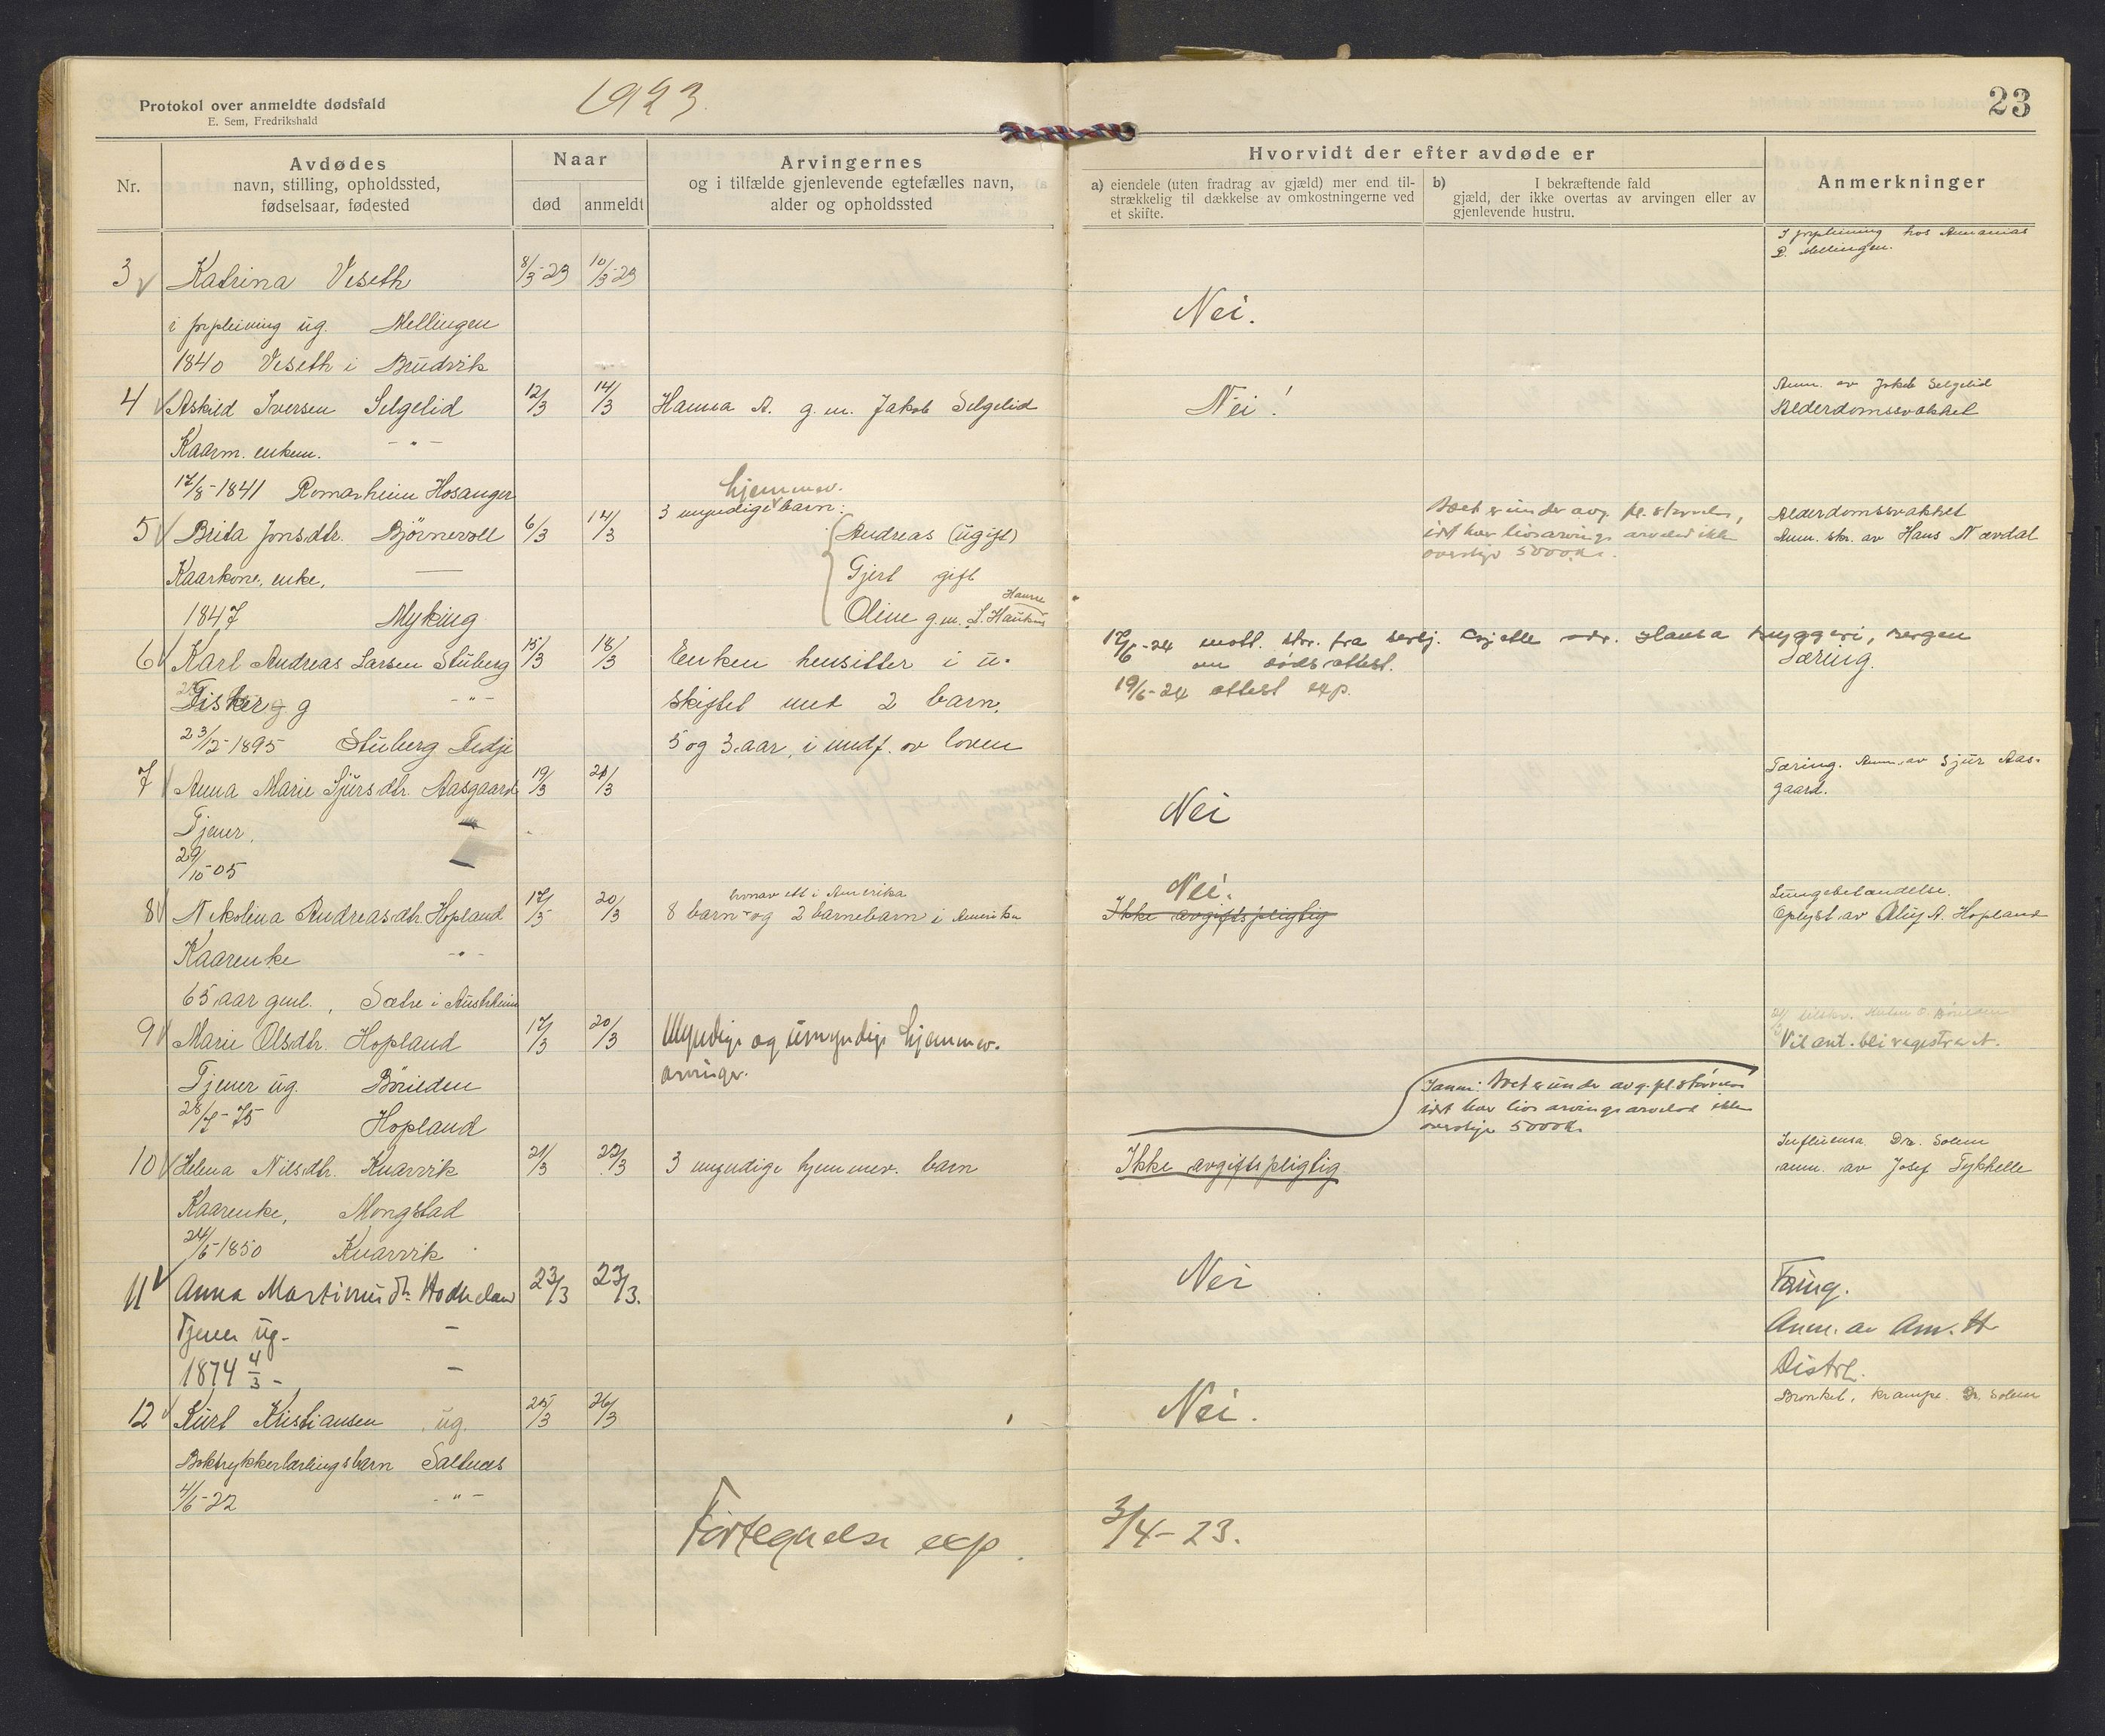 Protokol over anmeldte dødsfald
E. Sem, Fredrikshald
1923.
23
Nr.
Avdødes
navn, stilling, opholdssted,
fødselsaar, fødested
Naar
død
anmeldt
Arvingernes
og i tilfælde gjenlevende egtefælles navn,
alder og opholdssted
Hvorvidt der efter avdøde er
a) eiendele (uten fradrag av gjæld) mer end til-
strækkelig til dækkelse av omkostningerne ved
et skifte.
b) I bekræftende fald
gjæld, der ikke overtas av arvingen eller av
gjenlevende hustru.
Anmerkninger
I forpleining hos Annanias
P. Mellingen.
3 Katrina Veseth 8/3-23 10/3-23
Nei.
i forpleining ug. Mellingen
1840 Veseth i Brudvik
4 Askild Iversen Selgelid 12/3 14/3 Hanna A. g.m. Jakob Selgelid Nei!
Anm. av Jakob Selgelid
Alderdomssvakhet
Kaarm. enkem. - " -
17/8-1841 Romarheim Hosanger
hjemmev.
3 myndige barn:
5 Brita Jonsdtr. Bjørnevoll 6/3 14/3 Andreas (ugift)
Gjert gift
Hanse
Oline g.m. S. Haukaas
Boet er under avg. pl. størrelse,
idet hver livsarvings arvelod ikke
overstige 5000 kr.
Alderdomssvakhet
Anm. skr. av Hans Nævdal
Kaarkone, enke,
1847 Myking
6 Karl Andreas Larsen Stuberg 15/3 18/3 Enken hensitter i u-
skiftet med 2 barn.
5 og 3 aar, i medf. av loven
17/6-24 mott. skr. fra adr. Hansa Bryggeri, Bergen
om dødsattest.
19/6-24 attest exp.
Tæring.
Fisker g - " -
23/12-1895 Stuberg Fedje
7 Anna Marie Sjursdtr. Aasgaard 19/3 21/3 Nei
Tæring. Anm. av Sjur Aas-
gaard.
Tjener,
29/10-05
8 Nikolina Andreasdtr. Hopland 17/3 20/3
hvorav ett i Amerika
8 barn og 2 barnebarn i Amerika
Nei.
Ikke avgiftspligtig
Lungebetændelse.
Oplyst av Oluf A. Hopland
Kaarenke - " -
65 aar gml., Sætre i Austrheim
9 Marie Olsdtr. Hopland 17/3 20/3 Myndige og umyndige hjemmev.
arvinger.
Vil ant. bli registrert.
Tjener ug. Børilden
28/7-75 Hopland
Ianm: Boet er under avg. pl. størrelse
idet hver livsarvings arvelod ikke
overstige 5000 kr.
10 Helena Nilsdtr. Knarvik 21/3 22/3 3 myndige hjemmev. barn Ikke avgiftspligtig
Influensa Dr. Solem
anm. av Josef Tykkelle
Kaarenke, Mongstad
24/6-1850 Knarvik
11 Anna Martinusdtr Hodneland 23/3 23/3. Nei
Tæring.
Anm. av Am. H
Distrl.
Tjener ug. -
1874 4/3 - -
12 Kurt Kristiansen ug. 25/3 26/3 Nei.
Bronkit, krampe. Dr. Solem
Boktrykkerlærlingsbarn Saltnes
4/6-22 - " -
Fortegnelse exp. 3/4-23.